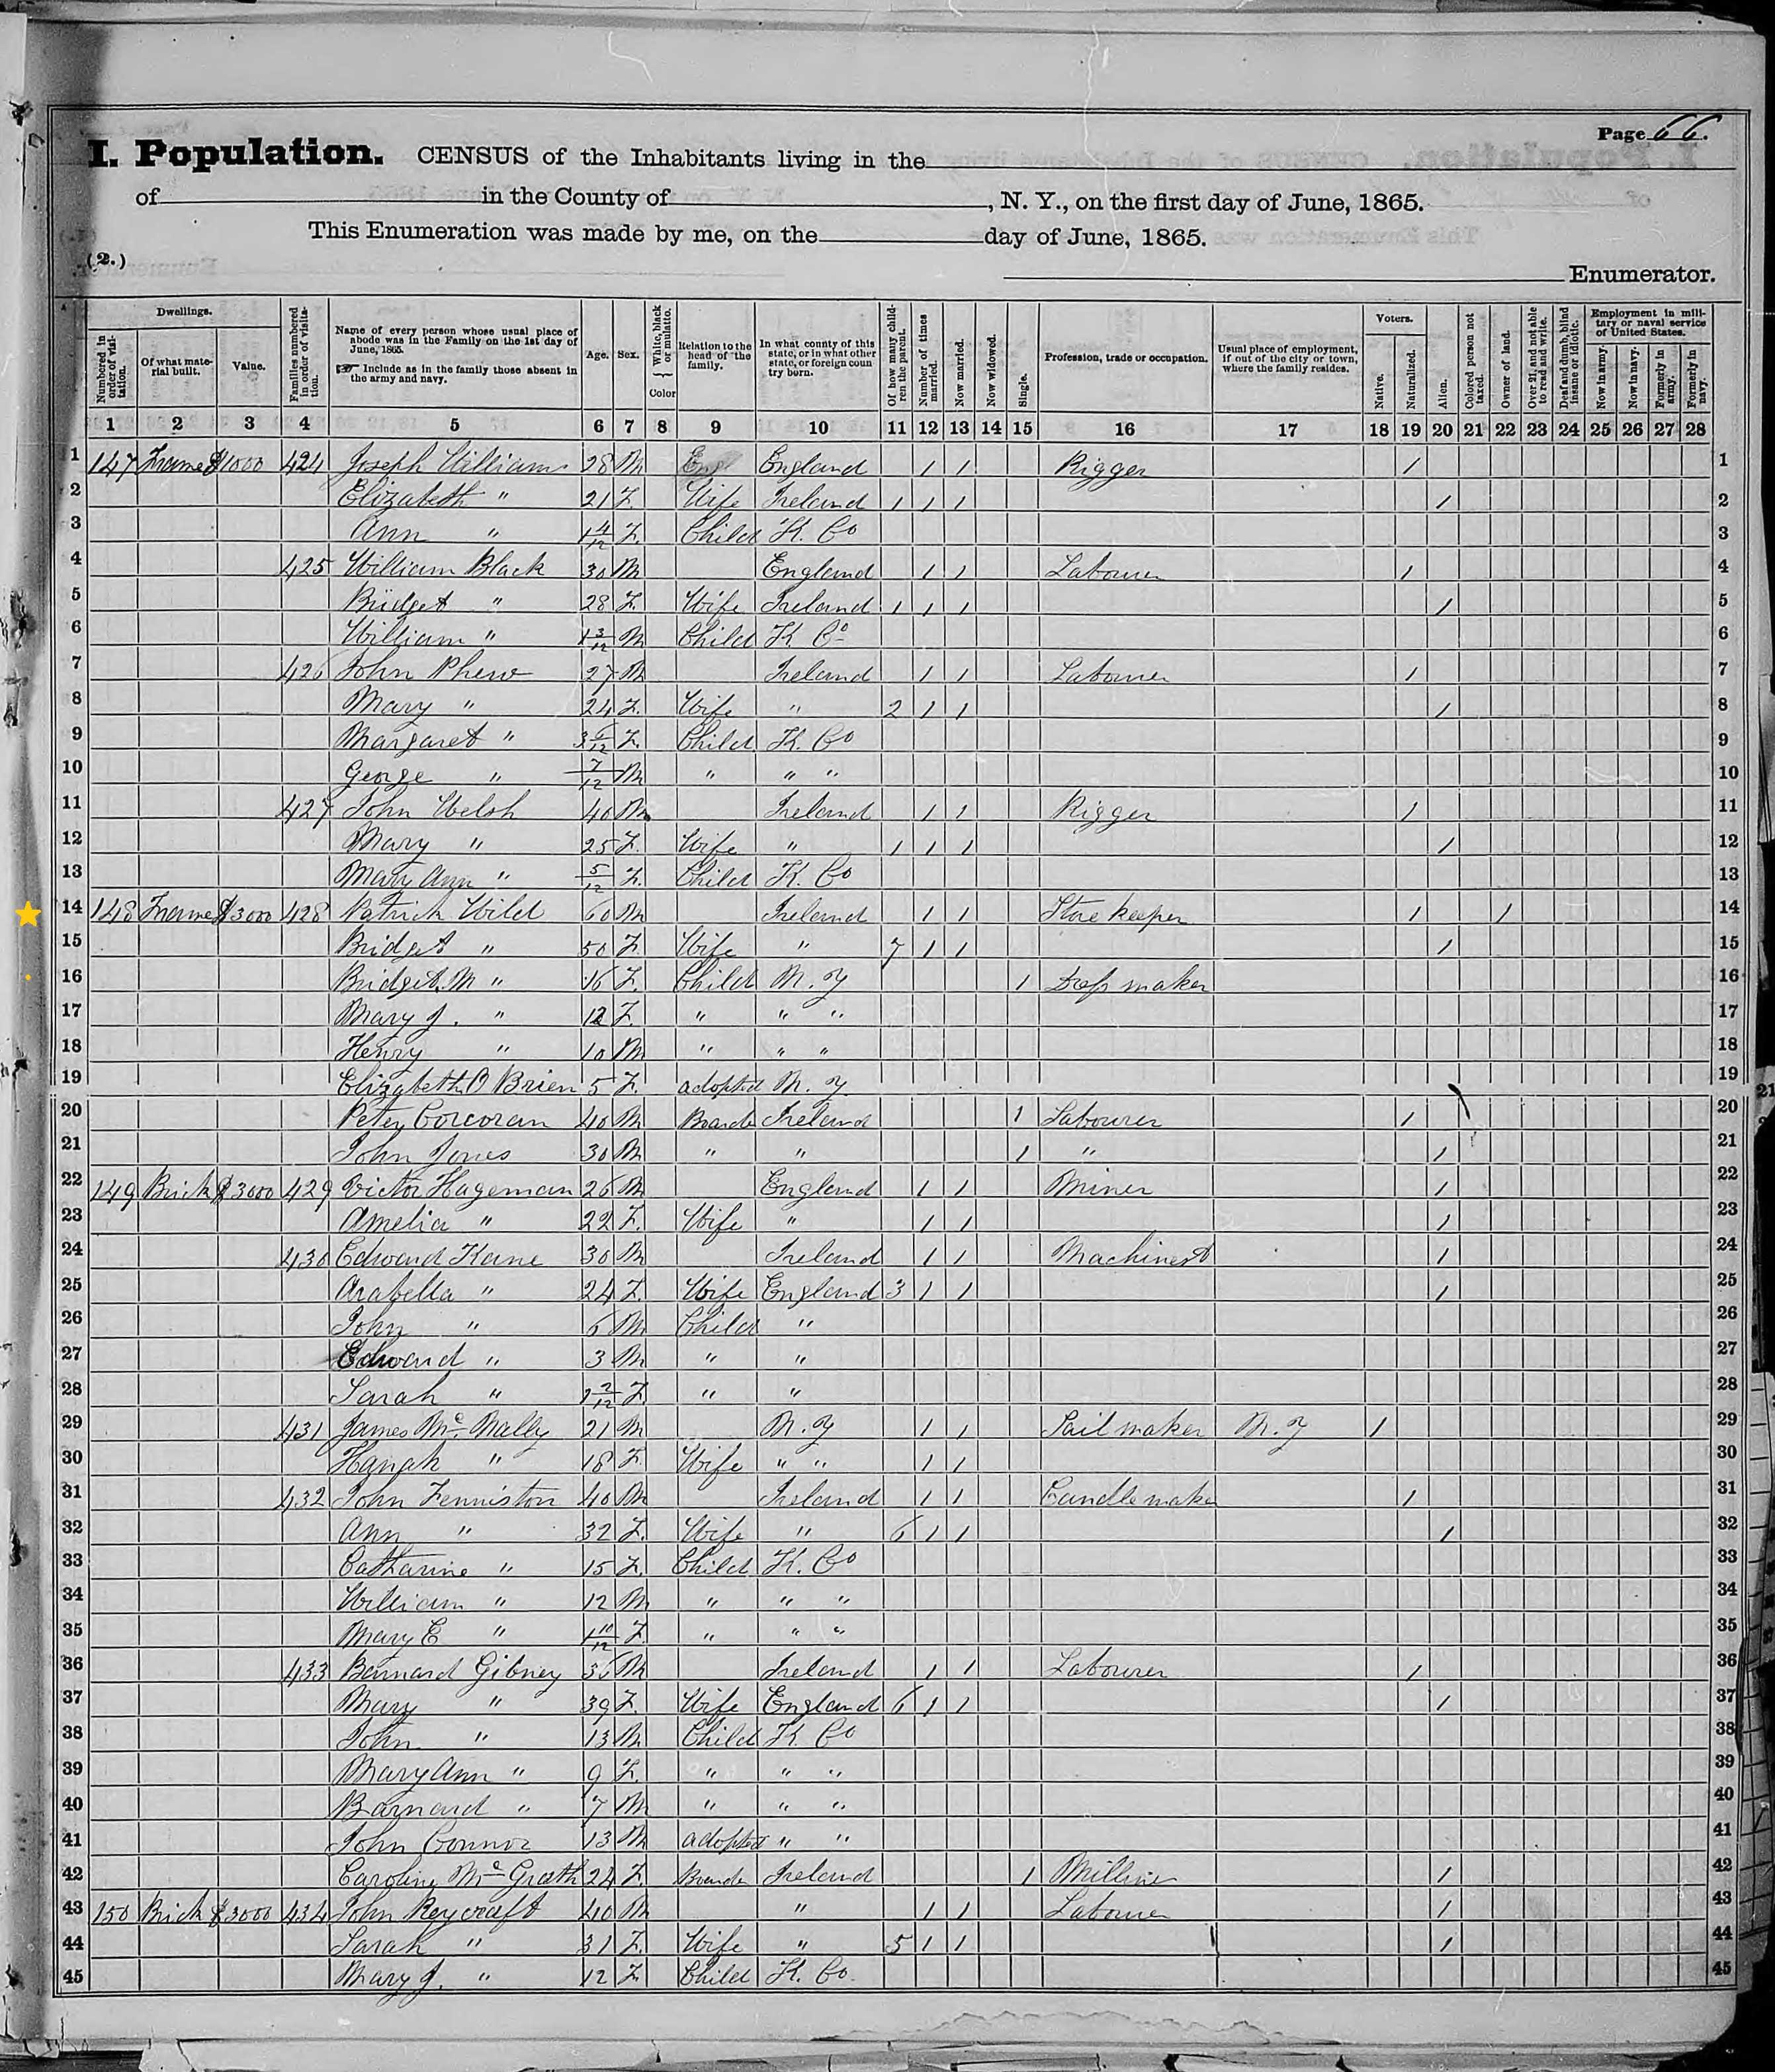 Page 66.
I. Population. CENSUS of the Inhabitants living in the
of in the County of , N. Y., on the first day of June, 1865.
This Enumeration was made by me, on the day of June, 1865.
(2.)
Enumerator.
Dwellings. Voters. Employment in military or naval service of United States.
Numbered in order of visitation. Of what material built. Value. Families numbered in order of visitation. Name of every person whose usual place of abode was in the Family on the 1st day of June, 1865. Include as in the family those absent in the army and navy. Age. Sex. White, black or mulatto. Color Relation to the head of the family. In what county of this state, or in what other state, or foreign country born. Of how many children the parent. Number of times married. Now married. Now widowed. Single. Profession, trade or occupation. Usual place of employment, if out of the city or town, where the family resides. Native. Naturalized. Alien. Colored person not taxed. Owner of land. Over 21, and not able to read and write. Deaf and dumb, blind insane or idiotic. Now in army. Now in navy. Formerly in army. Formerly in navy.
1 2 3 4 5 6 7 8 9 10 11 12 13 14 15 16 17 18 19 20 21 22 23 24 25 26 27 28
1 147 Frame $1000 424 Joseph Williams 28 M Engl England 1 1 Rigger 1 1
2 Elizabeth " 21 F. Wife Ireland 1 1 1 1 2
3 Ann " 1 4/12 F. Child K. Co 3
4 425 William Black 30 M England 1 1 Labourer 1 4
5 Bridget " 28 F. Wife Ireland 1 1 1 1 5
6 William " 1 3/12 M Child K. Co 6
7 426 John Phew 27 M Ireland 1 1 Labourer 1 7
8 Mary " 24 F. Wife " 2 1 1 1 8
9 Margaret " 3 6/12 F. Child K. Co 9
10 George " 7/12 M " " " 10
11 427 John Welsh 40 M Ireland 1 1 Rigger 1 11
12 Mary " 25 F. Wife " 1 1 1 1 12
13 Mary Ann " 5/12 F. Child K. Co 13
14 148 Frame $3000 428 Patrick Wild 60 M Ireland 1 1 Store keeper 1 1 14
15 Bridget " 50 F. Wife " 7 1 1 1 15
16 Bridget M " 16 F. Child N. Y 1 maker 16
17 Mary J. " 12 F. " " " 17
18 Henry " 10 M " " " 18
19 Elizabeth O Brien 5 F. adopted N. Y. 19
21
20 Peter Corcoran 40 M Boarder Ireland 1 Labourer 1 20
21 John Jones 30 M " " 1 " 1 21
22 149 Brick $3000 429 Victor Hageman 26 M England 1 1 Miner 1 22
23 Amelia " 22 F. Wife " 1 1 1 23
24 430 Edward Kane 30 M Ireland 1 1 Machinest 1 24
25 Arabella " 24 F. Wife England 3 1 1 1 25
26 John " 6 M Child " 26
27 Edward " 3 M " " 27
28 Sarah " 1 2/12 F " " 28
29 431 James Mc Nally 21 M N. Y 1 1 Sail maker N. Y 1 29
30 Hanah " 18 F. Wife " " 1 1 30
31 432 John Fenniston 40 M Ireland 1 1 Candle maker 1 31
32 Ann " 32 F. Wife " 6 1 1 1 32
33 Catharine " 15 F. Child K. Co 33
34 William " 12 M " " " 34
35 Mary E " 1 10/12 F. " " " 35
36 433 Bernard Gibney 36 M Ireland 1 1 Labourer 1 36
37 Mary " 39 F. Wife England 6 1 1 1 37
38 John " 13 M Child K. Co 38
39 Mary Ann " 9 F. " " " 39
40 Barnard " 7 M " " " 40
41 John Connor 13 M adopted " " 41
42 Caroline Mc Grath 24 F. Boarder Ireland 1 Milliner 1 42
43 150 Brick $3000 434 John Roycraft 40 M " 1 1 Labourer 1 43
44 Sarah " 31 F. Wife " 5 1 1 1 44
45 Mary J. " 12 F Child K. Co. 45